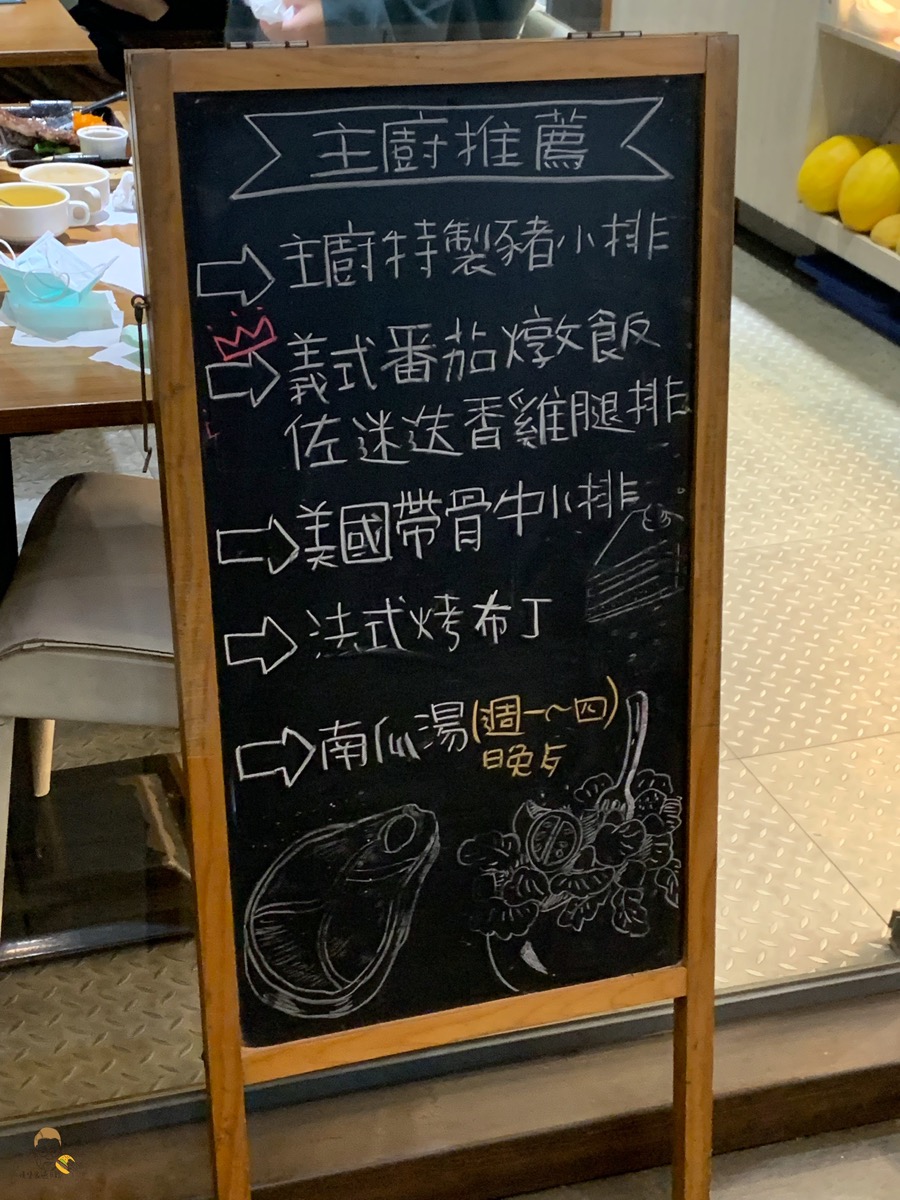 主廚推薦
主廚特製豬小排
義式番茄燉飯
佐迷迭香雞腿排
美國帶骨牛小排
法式烤布丁
南瓜湯(週一～四)
晚占